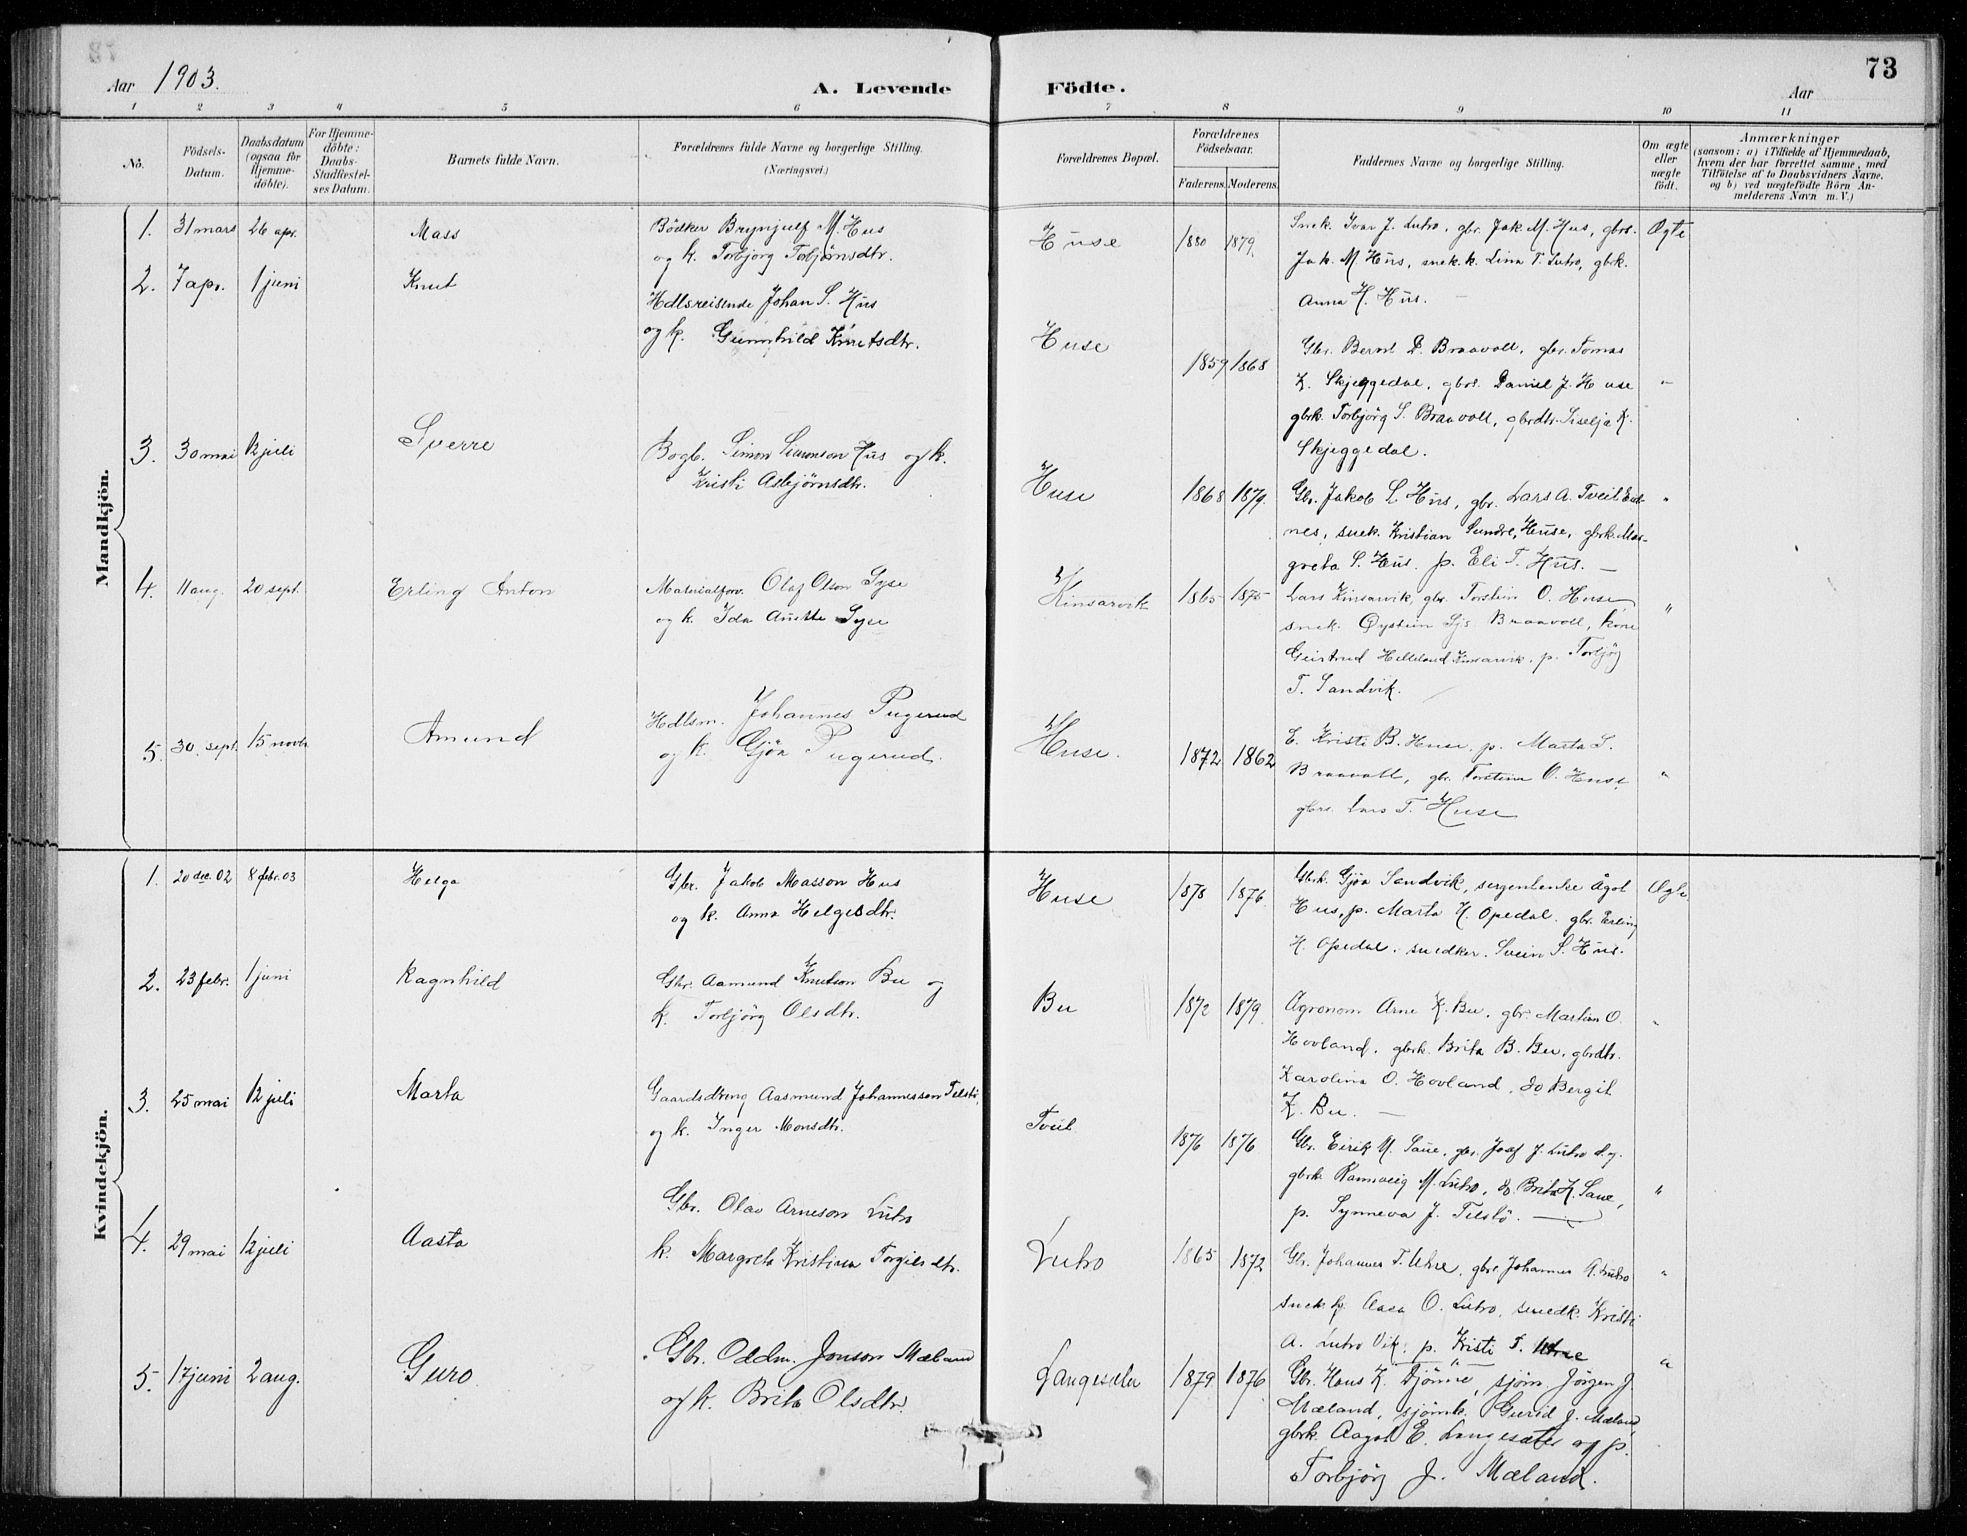 73
Aar 1903.
A. Levende Födte.
Aar
1 2 3 4 5 6 7 8 9 10 11
No.
Födsels-Datum.
Daabsdatum (ogsaa for Hjemme-döbte).
For Hjemme-döbte: Daabs-Stadfæstel-ses Datum.
Barnets fulde Navn.
Forældrenes fulde Navne og borgerlige Stilling.
(Næringsvei.)
Forældrenes Bopæl.
Forældrenes Födselsaar.
Faderens. Moderens.
Faddernes Navne og borgerlige Stilling.
Om ægte eller uægte födt.
Anmærkninger
(saasom: a) i Tilfælde af Hjemmedaab,
hvem der har forrettet samme, med
Tilföielse af to Daabsvidners Navne.
og b) ved uægtefödte Börn An-
melderens Navn m. V.)
Mandkjön.
1. 31 mars 26 apr. Mass
Bödker Brynjulf M. Hus
og k. Torbjorg Torbjørnsdtr.
Huse 1880 1879.
Snek. Ivar J. Lutro, gbr. Jak. M. Hus, gbrs.
Jak. M Hus, snek. k. Lina T. Lutro, gbrk.
Anna H. Hus. —
Ægte
2. 7 apr. 1 juni Knut
Hdlsreisende Johan S. Hus
og k. Gunnhild Knutsdtr.
Huse 1859 1868
Gbr. Bernt D. Braavoll, gbr. Tomas
K. Skjeggedal, gbrs. Daniel J. Huse
gbrk. Torbjörg S. Braavoll, gbrdtr. Siselja K.
Skjeggedal.
"
3. 30 mai 12 juli Sverre
Bogb. Simon Simonson Hus og k.
Kristi Asbjørnsdtr.
Huse 1868 1879.
Gbr. Jakob S. Hus, gbr. Lars A. Tveit Eid-
nes, snek. Kristian Sundre, Huse, gbrk. Mar-
greta S. Hus. p. Eli T. Hus. —
"
4. 11 aug. 20 sept. Erling Anton
Materialforv. Olaf Olson Syse
og k. Ida Anette Syse
Kinsarvik 1865 1875
Lars Kinsarvik, gbr. Torstein O. Huse
snek. Øystein Sjs Braavoll, kone
Geirtrud Helleland Kinsarvik, p. Torbjörg
T. Sandvik.
"
5. 30. sept. 15 novbr Amund
Hdlsm. Johannes Pugerud
og k. Gjöa Pugerud.
Huse. 1872 1862
E. Kristi B. Huse, p. Marta S.
Braavoll, gbr. Torstein O. Huse,
gbrs. Lars T. Huse
"
Kvindekjön.
1. 20 dec. 02 8 febr. 03 Helga
Gbr. Jakob Masson Hus
og k. Anna Helgesdtr.
Huse 1878 1876
Gbrk. Gjöa Sandvik, sergentenke Ågot
Hus, p. Marta H. Opedal, gbr. Erling
H. Opedal, snedker. Svein S. Hus.
Ægte
2. 23 febr. 1 juni Ragnhild
Gbr. Aamund Knutson Bu og
k. Torbjörg Olsdtr.
Bu 1872 1879.
Agronom Arne K. Bu, gbr. Martin O.
Hovland, gbrk. Brita B. Bu, gbrdtr.
Karolina O. Hovland, do Bergit
K. Bu. —
"
3. 25 mai 12 juli Marta
Gaardsdreng Aasmund Johannesson Telstö,
og k. Inger Monsdtr.
Tveit 1876 1876
Gbr. Eirik M. Saue, gbr. Josef J. Lutro d.y.
gbrk. Rannveig M. Lutro, do. Brita K. Saue,
p. Synneva J. Telstö. —
"
4. 29 mai 12 juli Aasta
Gbr. Olav Arneson Lutro
k. Margreta Kristina Torgilsdtr.
Lutro 1865 1872
Gbr. Johannes T. Utne, gbrs Johannes A. Lutro
snek. k. Aasa O. Lutro, snedk. Kristi
A. Lutro Vik, p. Kristi T. Utne
"
5. 17 juni 2 aug. Guro
Gbr. Oddm. Jonson Mæland
og k. Brita Olsdtr.
Langesæter 1879 1876
Gbr. Hans K. Djönne, sjöm. Jörgen J.
Mæland, sjömk. Gurid J. Mæland,
gbrk. Aagot E. Langesæter og p.
Torbjörg J. Mæland.
"